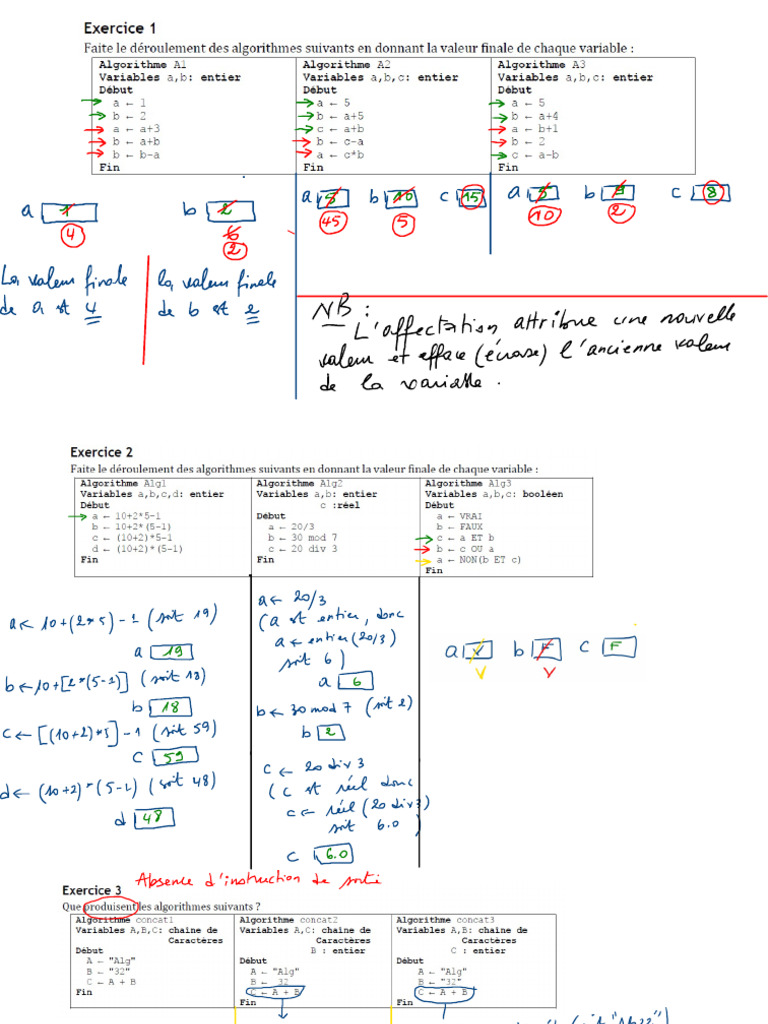 Exercice 1
Faite le déroulement des algorithmes suivants en donnant la valeur finale de chaque variable :
Algorithme A1
Variables a,b: entier
Début
a ← 1
b ← 2
a ← a+3
b ← a+b
b ← b-a
Fin
Algorithme A2
Variables a,b,c: entier
Début
a ← 5
b ← a+5
c ← a+b
b ← c-a
a ← c*b
Fin
Algorithme A3
Variables a,b,c: entier
Début
a ← 5
b ← a+4
a ← b+1
b ← 2
c ← a-b
Fin
a 1
4
b 2
6
2
a 5
45
b 10
5
c 15
a 5
10
b 9
2
c 8
La valeur finale
de a est 4
la valeur finale
de b est 2
NB :
L'affectation attribue une nouvelle
valeur et efface (écrase) l'ancienne valeur
de la variable.
Exercice 2
Faite le déroulement des algorithmes suivants en donnant la valeur finale de chaque variable :
Algorithme Alg1
Variables a,b,c,d: entier
Début
a ← 10+2*5-1
b ← 10+2*(5-1)
c ← (10+2)*5-1
d ← (10+2)*(5-1)
Fin
Algorithme Alg2
Variables a,b: entier
c :réel
Début
a ← 20/3
b ← 30 mod 7
c ← 20 div 3
Fin
Algorithme Alg3
Variables a,b,c: booléen
Début
a ← VRAI
b ← FAUX
c ← a ET b
b ← c OU a
a ← NON(b ET c)
Fin
a ← 10+(2*5)-1 (soit 19)
a 19
b ← 10+[2*(5-1)] (soit 18)
b 18
c ← [(10+2)*5]-1 (soit 59)
c 59
d ← (10+2)*(5-1) (soit 48)
d 48
a ← 20/3
(a est entier, donc
a ← entier(20/3)
soit 6)
a 6
b ← 30 mod 7 (soit 2)
b 2
c ← 20 div 3
(c est réel donc
c ← réel (20 div 3)
soit 6.0 )
c 6.0
a V
V
b F
V
c F
Absence d'instruction de sortie
Exercice 3
Que produisent les algorithmes suivants ?
Algorithme concat1
Variables A,B,C: chaine de
Caractères
Début
A ← "Alg"
B ← "32"
C ← A + B
Fin
Algorithme concat2
Variables A,C: chaine de
Caractères
B : entier
Début
A ← "Alg"
B ← 32
C ← A + B
Fin
Algorithme concat3
Variables A,B: chaine de
Caractères
C : entier
Début
A ← "Alg"
B ← "32"
C ← A + B
Fin